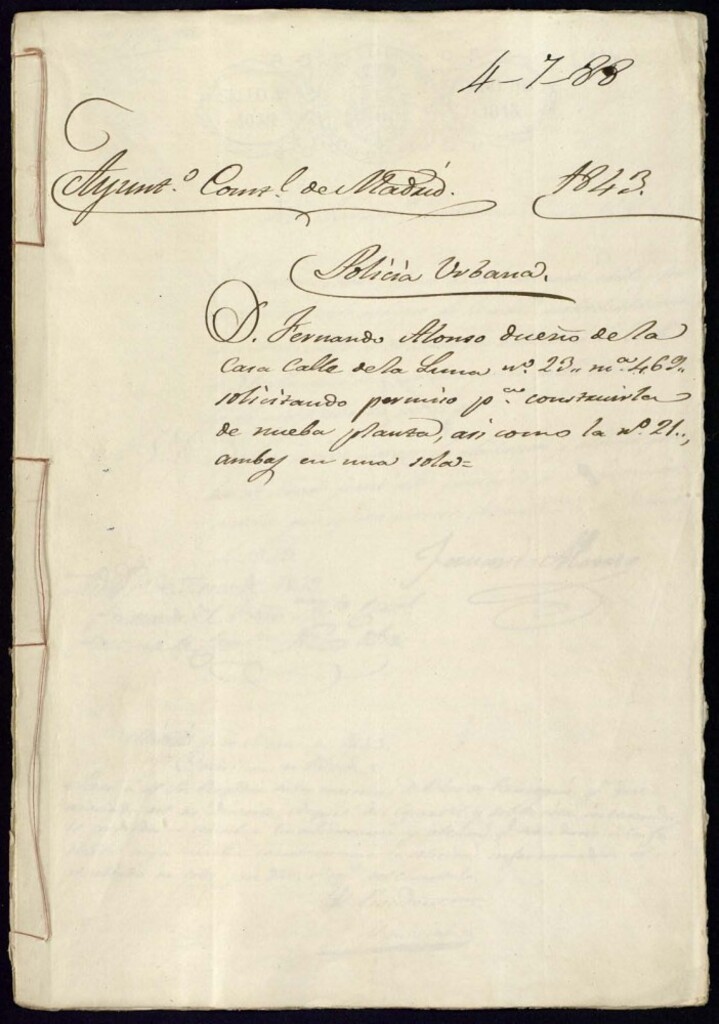 4-7-88
Ayunt.º Const.l de Madrid. 1843.
Policia Urbana.
D. Fernando Alonso dueño de la
Casa Calle de la Luna nº. 23,, m.ª 469,,
solicitando permiso p.ª construirla
de nueba planta, asi como la nº. 21,,
ambas en una sola=